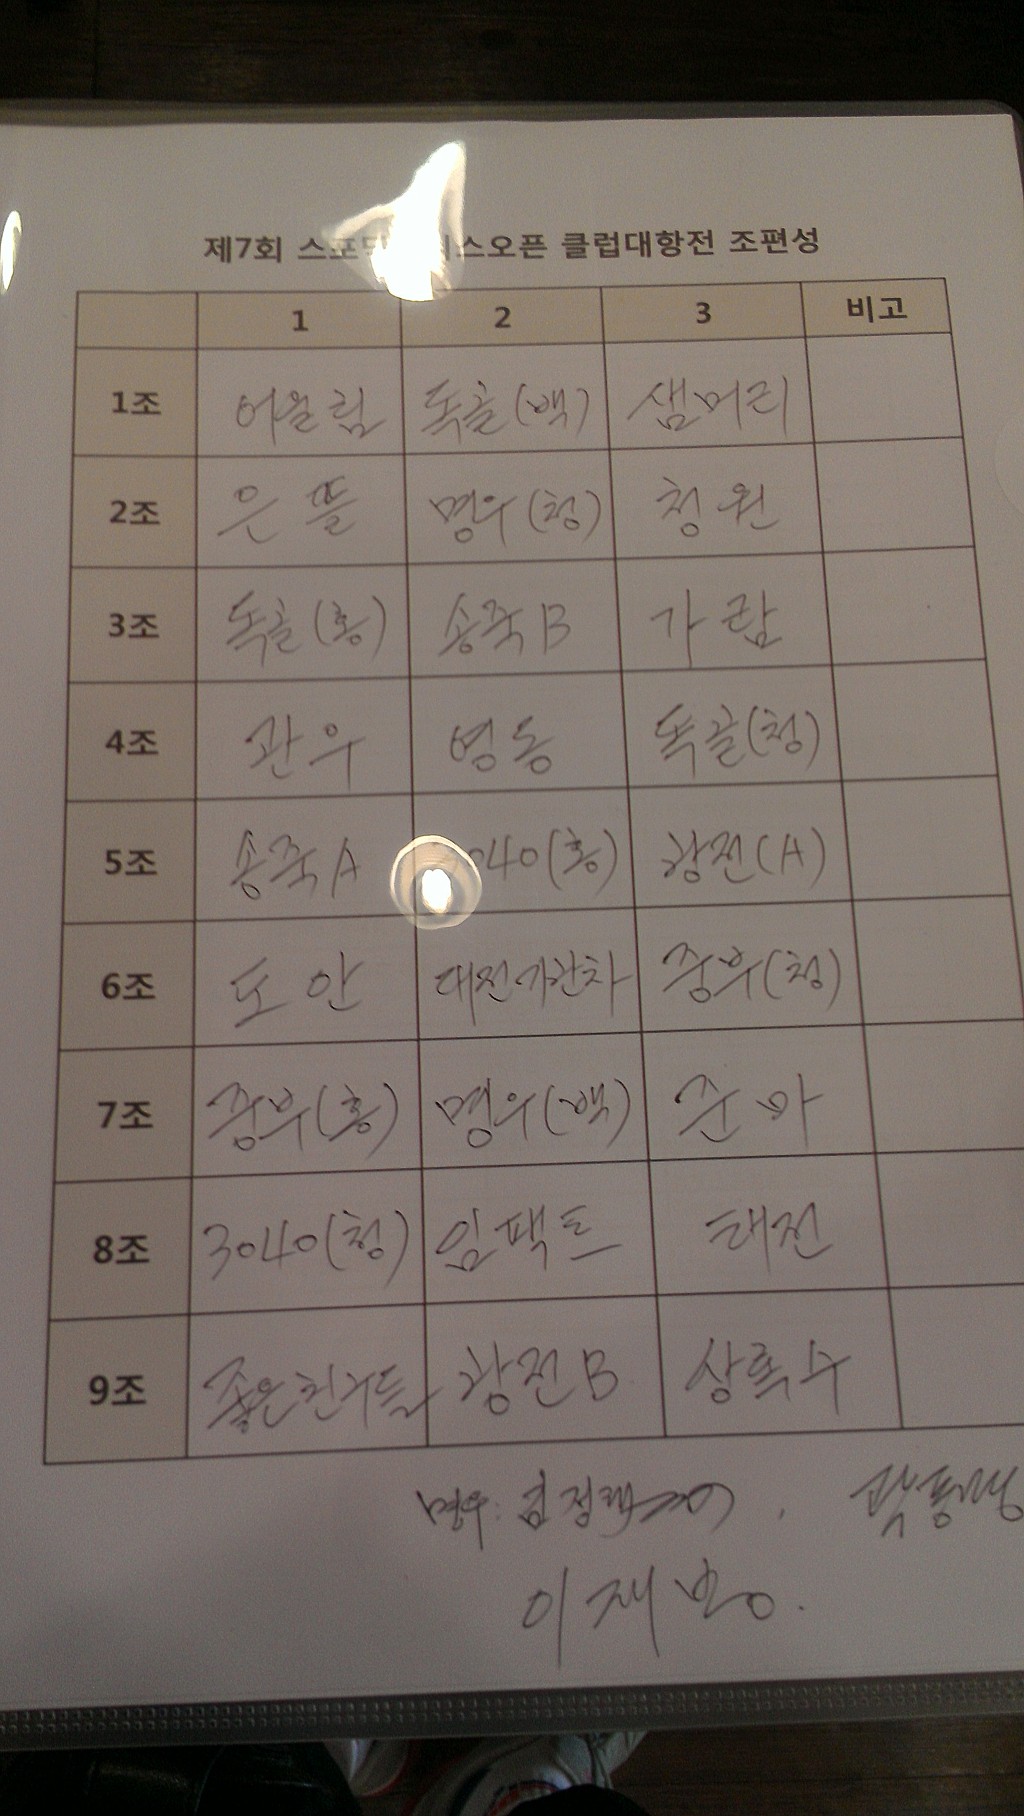 제7회 스포 스오픈 클럽대항전 조편성
1 2 3 비고
1조 어울림 독골(백) 샘머리
2조 은뜰 명우(청) 청원
3조 독골(홍) 송죽B 가람
4조 관우 영동 독골(청)
5조 송죽A 040(홍) 한전(A)
6조 도안 대전가한차 중부(청)
7조 중부(홍) 명우(백) 준마
8조 3040(청) 임팩트 태전
9조 좋은친구들 한전B 상록수
명우: 김정택
이재봉.